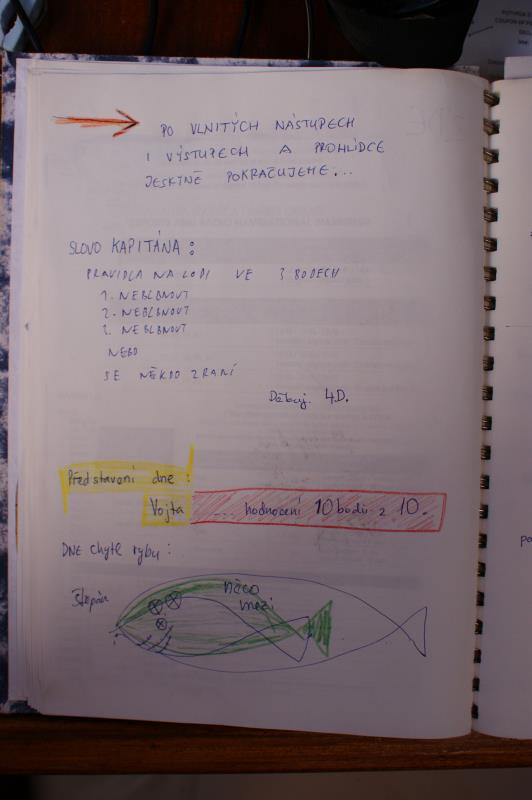 PO VLNITÝCH NÁSTUPECH
I VÝSTUPECH A PROHLÍDCE
JESKYNĚ POKRAČUJEME...
SLOVO KAPITÁNA:
PRAVIDLA NA LODI VE 3 BODECH
1. NEBLBNOUT
2. NEBLBNOUT
3. NEBLBNOUT
NEBO
SE NĚKDO ZRANÍ
Děkuj. 4D.
Představení dne:
Vojta ... hodnocení 10 bodů z 10.
DNE chytl rybu:
Štěpán
něco
mezi